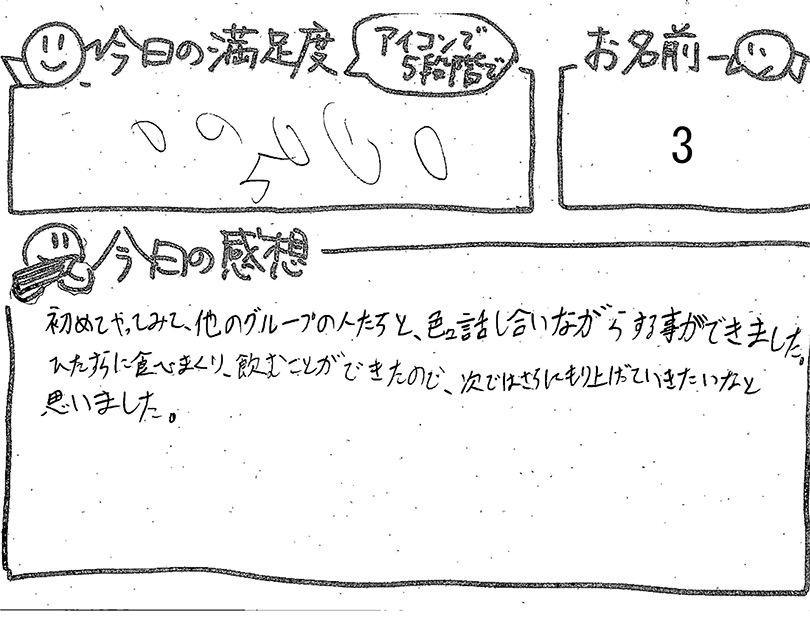 今日の満足度
アイコンで
5段階で
お名前
3
今日の感想
初めてやってみて、他のグループの人たちと、色々話し合いながらする事ができました。
ひたすらに食べまくり、飲むことができたので、次ではさらにもり上げていきたいなと
思いました。